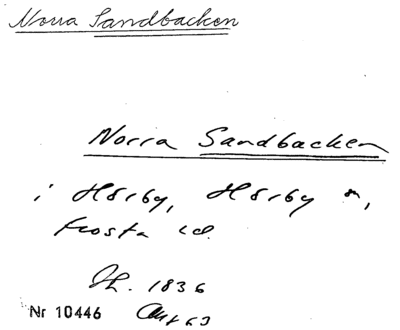 Norra Sandbacken
Norra Sandbacken
i Hörby, Hörby sn,
Frosta hd.
Jh. 1836
Nr 10446